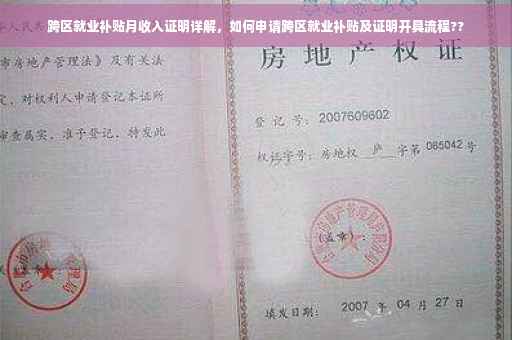 跨区就业补贴月收入证明详解，如何申请跨区就业补贴及证明开具流程??
华人民共
市房地产管理法》及有关法
定，对权利人申请登记本证所
审查属实，准予登记，特发此
房地产权证
登记号：2007609602
权证字号：房地权 庐 字第 065042 号
(盖章)：
填发日期： 2007 年 04 月 27 日